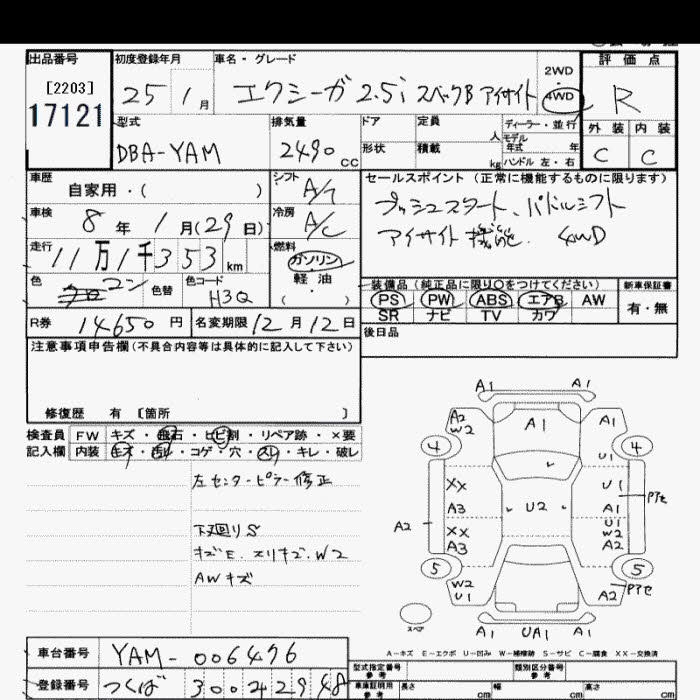 出品番号 初度登録年月 車名・グレード 2WD 4WD 評価点
[2203] 17121 25 1月 エクシーガ 2.5i スペックB アイサイト R
型式 排気量 ドア 定員 人 ディーラー・並行 外装 内装
DBA-YAM 2490 cc 形状 積載 kg モデル年式 年 ハンドル 左・右 C C
車歴 自家用・( ) シフト A/T セールスポイント (正常に機能するものに限ります)
車検 8年 1月(29日) 冷房 A/C プッシュスタート、パドルシフト
走行 11万1千353km 燃料 ガソリン アイサイト 機能. 4WD
色 コン 色替 色コード H3Q 軽油 ( )
装備品 (純正品に限り○をつけてください) 新車保証書
PS PW ABS エアB AW 有・無
SR ナビ TV カワ
R券 14650円 名変期限 12月12日 後日品
注意事項申告欄 (不具合内容等は具体的に記入して下さい)
修復歴 有 〔箇所 〕
検査員 FW キズ・飛石・ヒビ割・リペア跡・×要
記入欄 内装 キズ・汚れ・コゲ・穴・スレ・キレ・破レ
左センターピラー修正
下廻りS
キズE. スリキズ. W2
AWキズ
A1 A1
A2 W2 A1 A1
4 4
U1
XX U1 Pアセ
A3 U2 A1
A2 XX U1 W2
A3 A2
5 5
W2 U1 A2 Pアセ
スペア A1 UA1 A1
A－キズ E－エクボ U－凹み W－補修跡 S－サビ C－腐食 XX－交換済
車台番号 YAM-006476
型式指定番号 参考 類別区分番号 参考
登録番号 つくば 300 ・2948
車庫証明用 参考 長さ cm 幅 cm 高さ cm